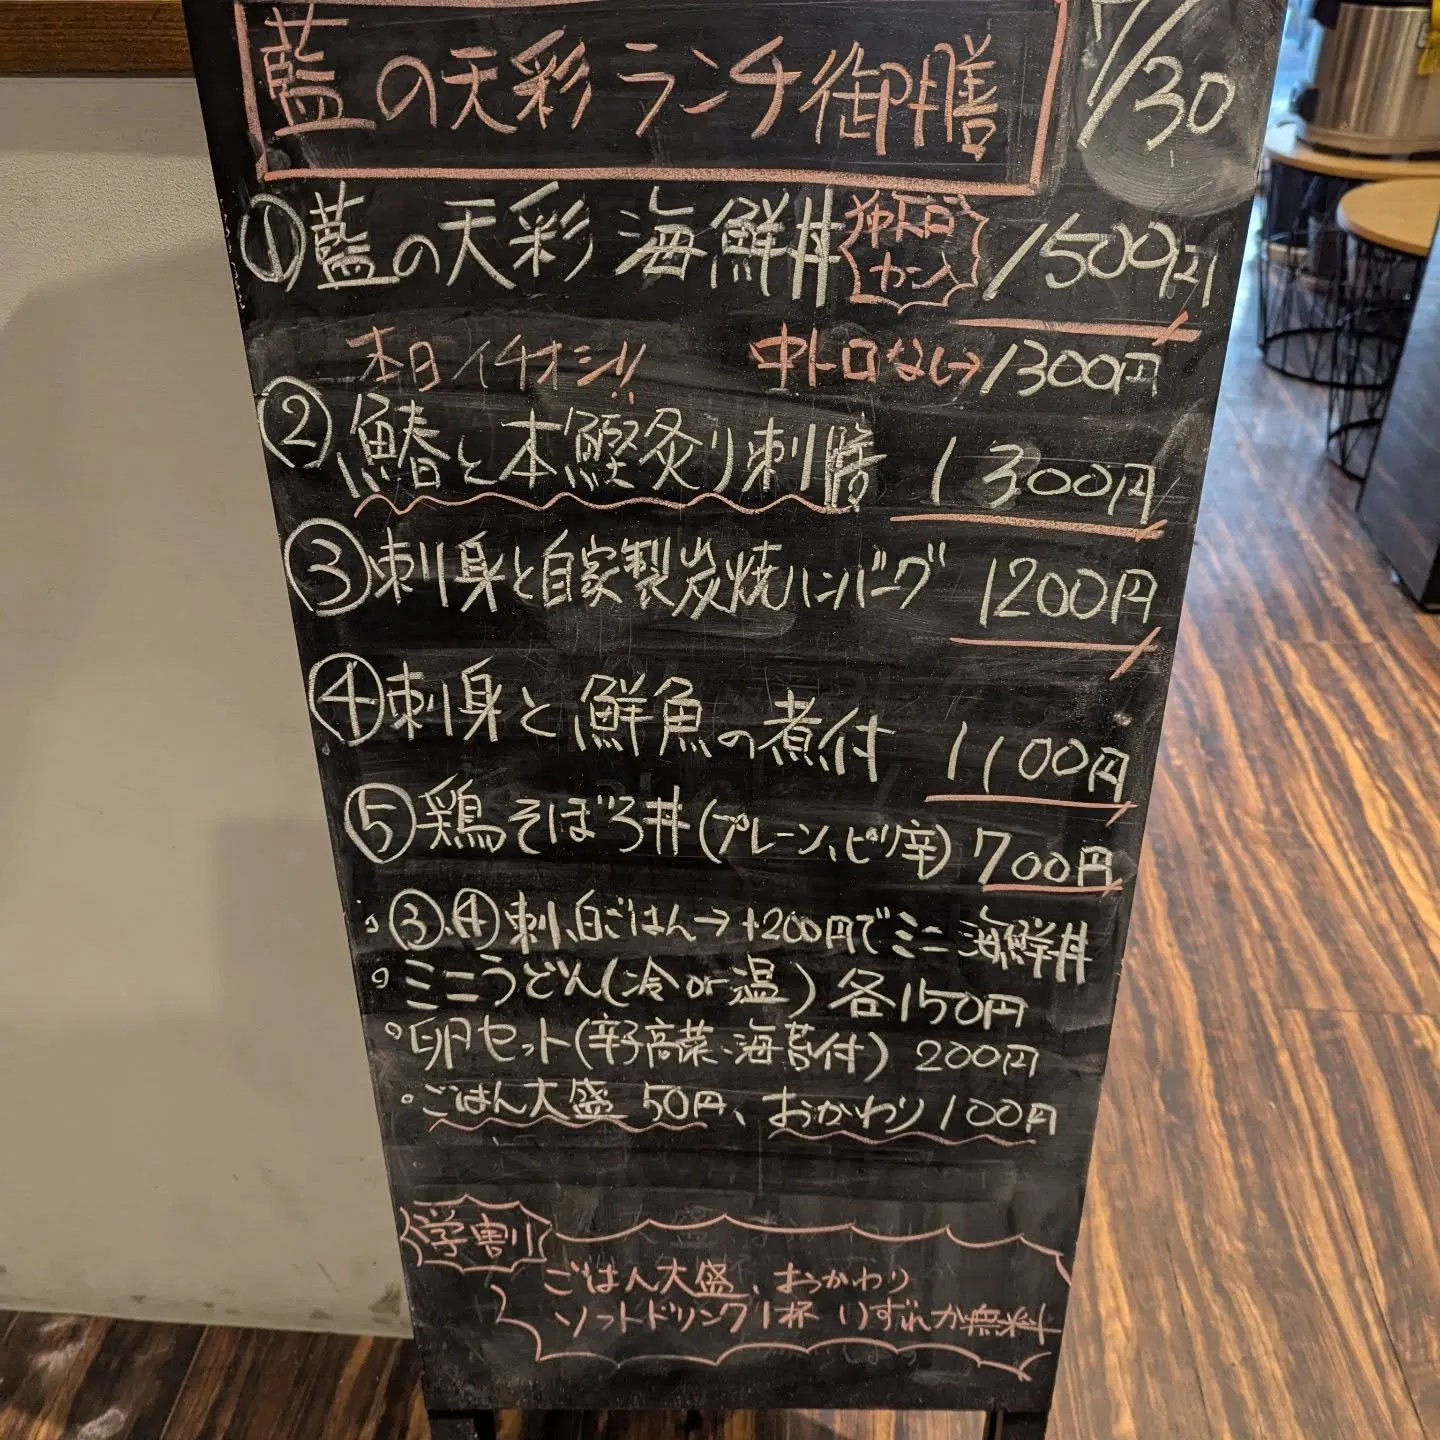 藍の天彩 ランチ御膳 7/30
①藍の天彩 海鮮丼 1500円
本日イチオシ!! 中トロなし→1300円
②鰆と本鰹炙り刺膳 1300円
③刺身と自家製炭焼ハンバーグ 1200円
④刺身と鮮魚の煮付 1100円
⑤鶏そぼろ丼(プレーン、ピリ辛) 700円
③、④刺、白ごはん→+200円でミニ海鮮丼
ミニうどん(冷or温) 各150円
卵セット(辛子高菜・海苔付) 200円
ごはん大盛 50円、おかわり100円
学割
ごはん大盛、おかわり
ソフトドリンク1杯 いずれか無料